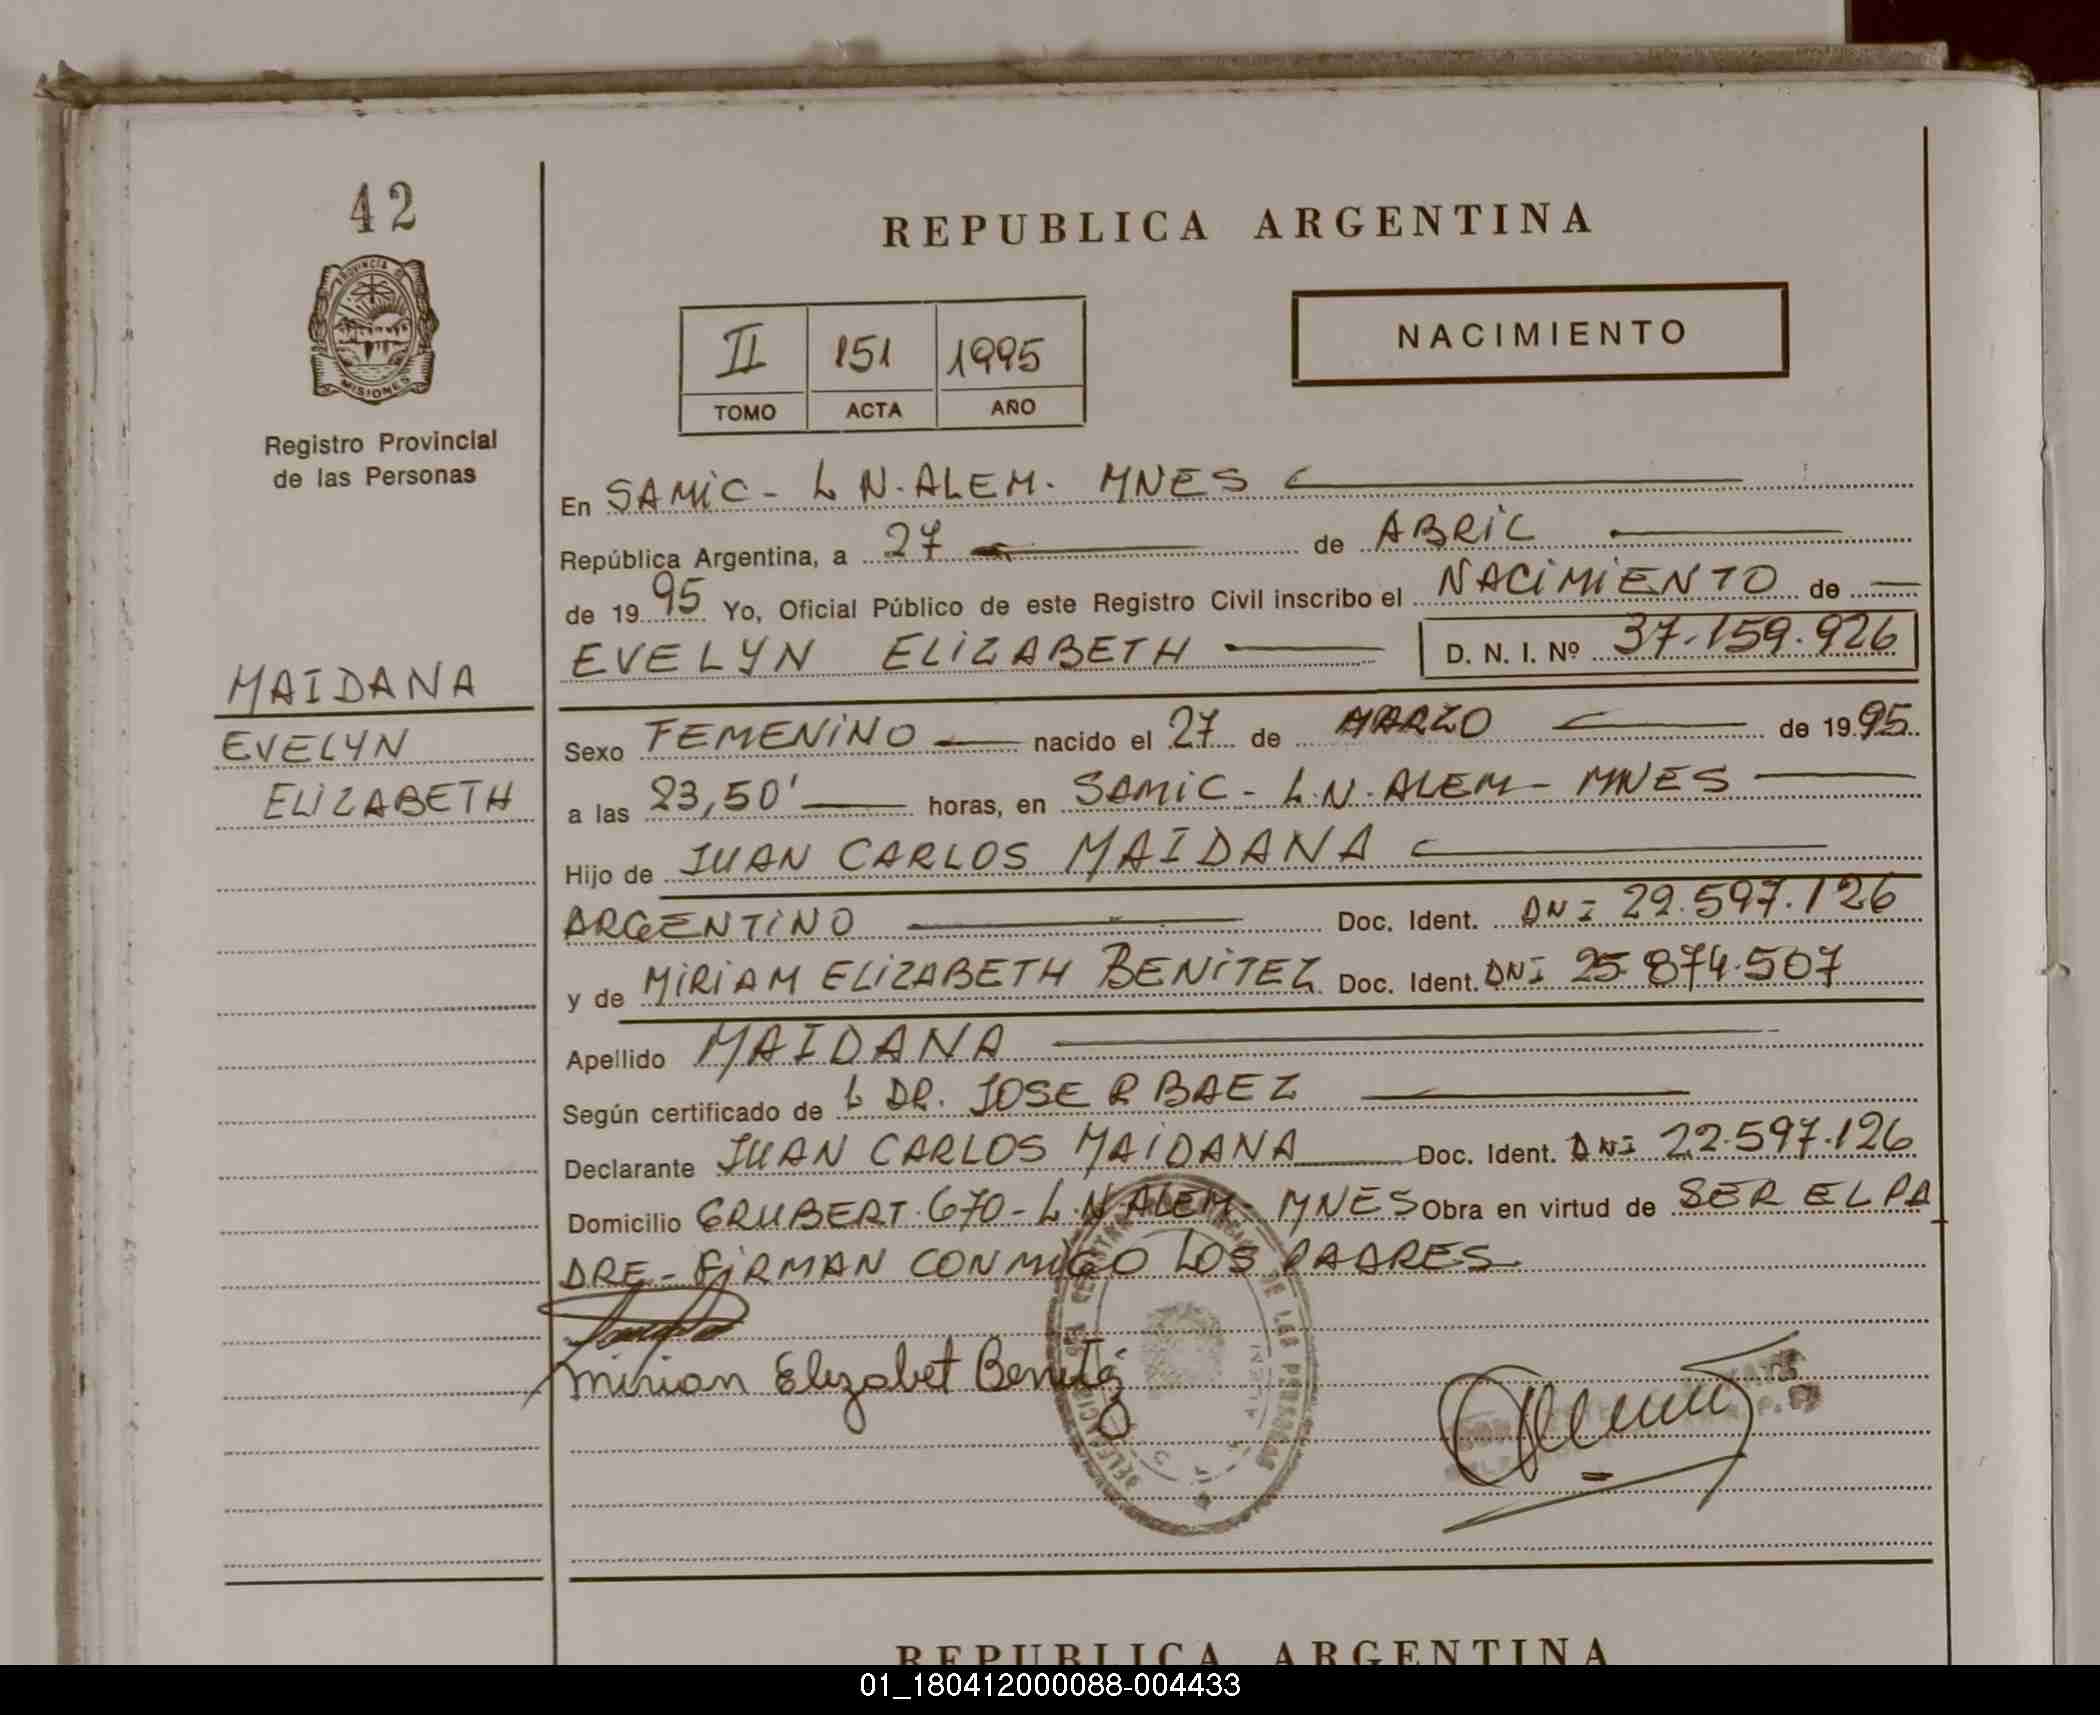 42
REPUBLICA ARGENTINA
PROVINCIA DE
MISIONES
Registro Provincial
de las Personas
II 151 1995
TOMO ACTA AÑO
NACIMIENTO
En SAMIC - L N. ALEM. MNES
República Argentina, a 27 de ABRIL
de 1995 Yo, Oficial Público de este Registro Civil inscribo el NACIMIENTO de
EVELYN ELIZABETH D. N. I. Nº 37.159.926
MAIDANA
EVELYN
ELIZABETH
Sexo FEMENINO nacido el 27 de MARZO de 1995.
a las 23,50' horas, en SAMIC - L.N. ALEM - MNES
Hijo de JUAN CARLOS MAIDANA
ARGENTINO Doc. Ident. DNI 22.597.126
y de MIRIAM ELIZABETH BENITEZ Doc. Ident. DNI 25.874.507
Apellido MAIDANA
Según certificado de L DR. JOSE R BAEZ
Declarante JUAN CARLOS MAIDANA Doc. Ident. DNI 22.597.126
Domicilio GRUBERT. 670 - L.N ALEM - MNES Obra en virtud de SER EL PA
DRE - FIRMAN CONMIGO LOS PADRES
Mirian Elizabet Benitez
DE LAS PERSONAS
REPUBLICA ARGENTINA
01_180412000088-004433